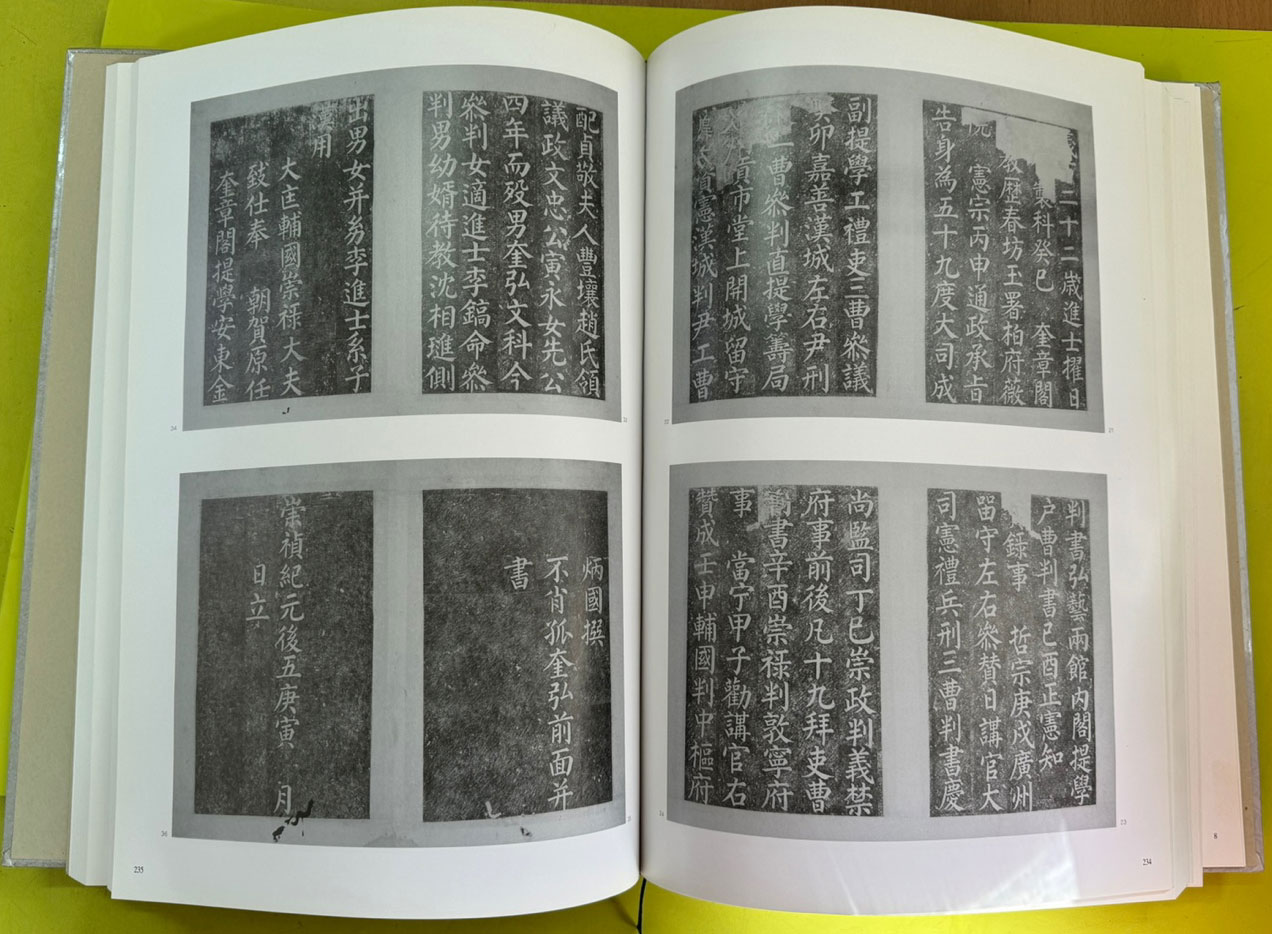 二十二歲進士擢日
製科癸巳 奎章閣
教歷春坊玉署柏府薇
院 憲宗丙申通政承旨
告身為五十九度大司成
副提學工禮吏三曹叅議
癸卯嘉善漢城左右尹刑
曹叅判直提學籌局
貢市堂上開城留守
資憲漢城判尹工曹
判書弘藝兩館內閣提學
户曹判書己酉正憲知
錄事 哲宗庚戌廣州
留守左右叅贊日講官大
司憲禮兵刑三曹判書慶
尚監司丁巳崇政判義禁
府事前後凡十九拜吏曹
判書辛酉崇祿判敦寧府
事 當宁甲子勸講官右
贊成壬申輔國判中樞府
配貞敬夫人豐壤趙氏領
議政文忠公寅永女先公
四年而殁男奎弘文科今
叅判女適進士李鎬命叅
判男幼婿待教沈相璡側
出男女并㓜李進士系子
用
大匡輔國崇祿大夫
致仕奉 朝賀原任
奎章閣提學安東金
炳國撰
不肖孤奎弘前面并
書
崇禎紀元後五庚寅 月
日立
21
22
23
24
235
234
8